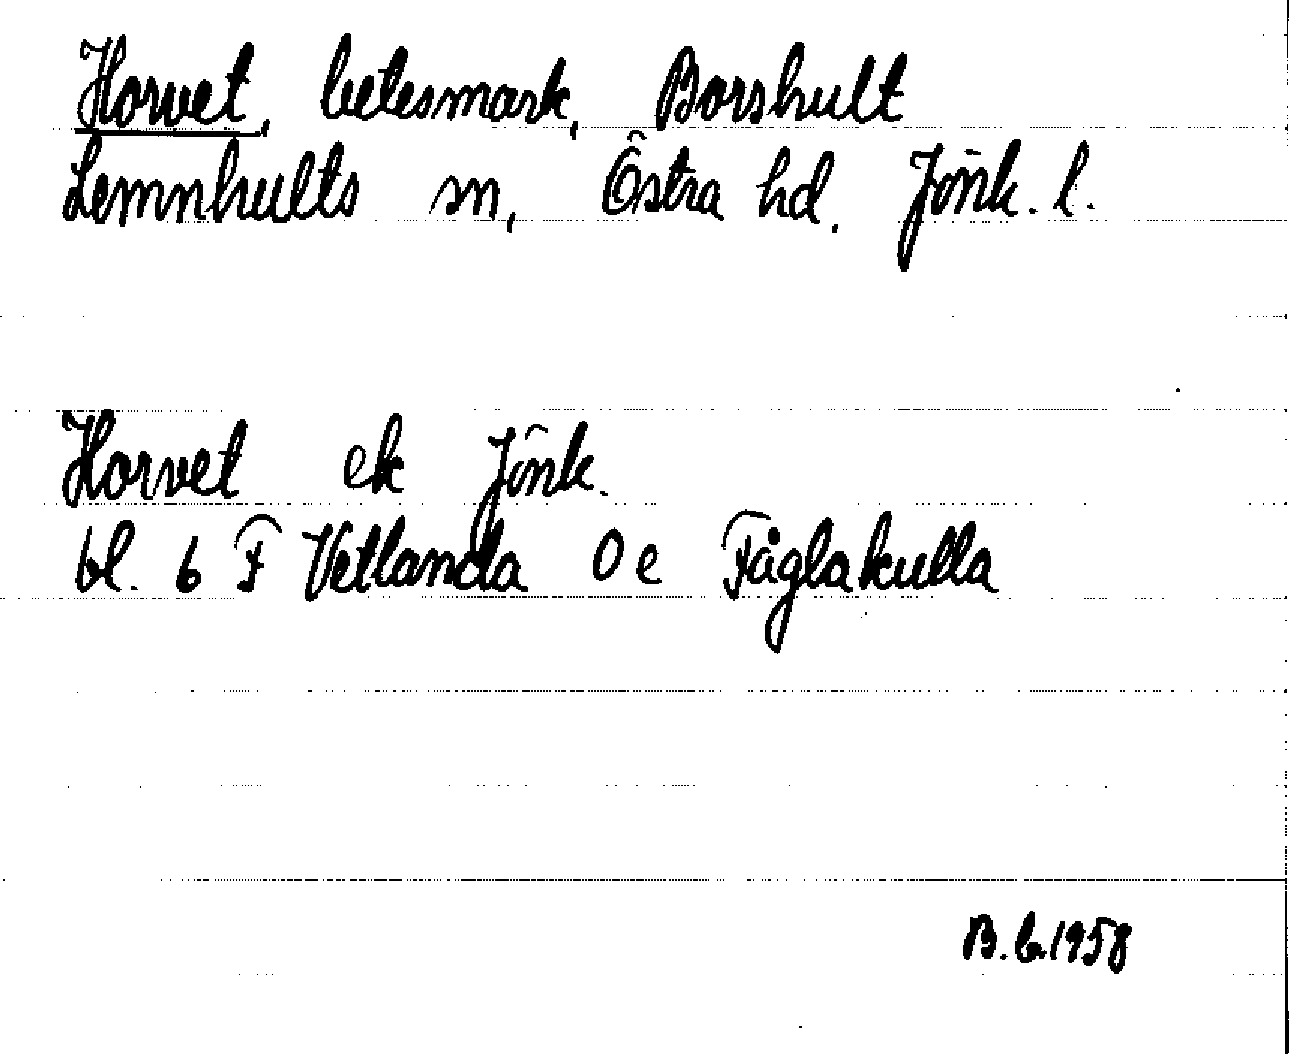 Horvet, betesmark, Borshult
Lemnhults sn, Östra hd. Jönk. l.
Horvet ek Jönk.
bl. 6 F Vetlanda 0 e Fåglakulla
B.b.1958